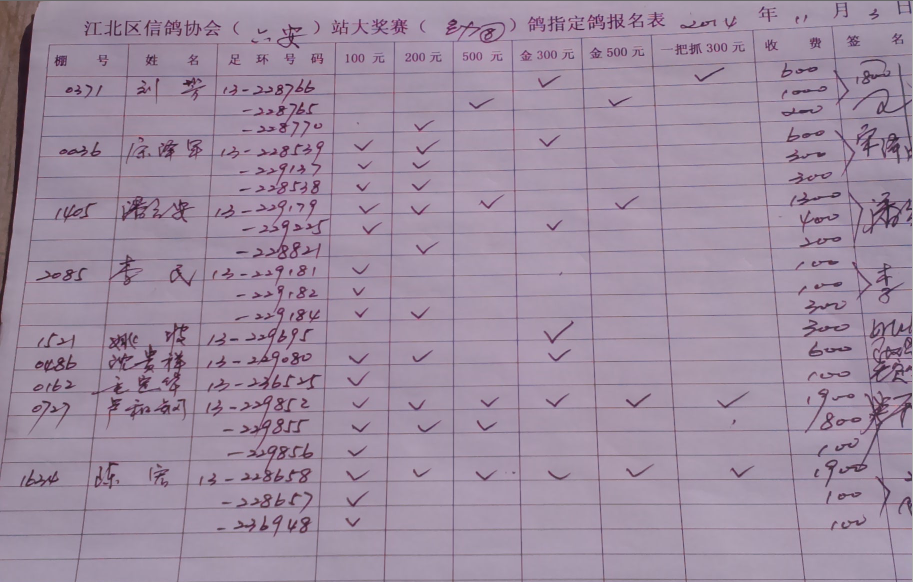 江北区信鸽协会（六安）站大奖赛（ ⑧）鸽指定鸽报名表 2014 年 11 月 3 日
棚 号 姓 名 足 环 号 码 100 元 200 元 500 元 金 300 元 金 500 元 一把抓 300 元 收 费 签 名
0371 刘 13-228766 ✓ ✓ 600 1800
-228765 ✓ ✓ 1000
-228770 ✓ 200
0036 宗泽军 13-228539 ✓ ✓ ✓ 600 宗泽
-229137 ✓ ✓ 300
-228538 ✓ ✓ 300
1405 潘 安 13-229179 ✓ ✓ ✓ ✓ 1300 潘
-229225 ✓ ✓ 400
-228821 ✓ 200
2085 李 民 13-229181 ✓ 100 李
-229182 ✓ 100
-229184 ✓ ✓ 300
1521 姚 13-229695 ✓ 300
0486 沈贵祥 13-229080 ✓ ✓ ✓ 600
0162 13-236525 ✓ 100
0727 13-229852 ✓ ✓ ✓ ✓ ✓ ✓ 1900
-229855 ✓ ✓ ✓ 800
-229856 ✓ 100
1624 陈 宏 13-228658 ✓ ✓ ✓ ✓ ✓ ✓ 1900
-228657 ✓ 100
-236948 ✓ 100